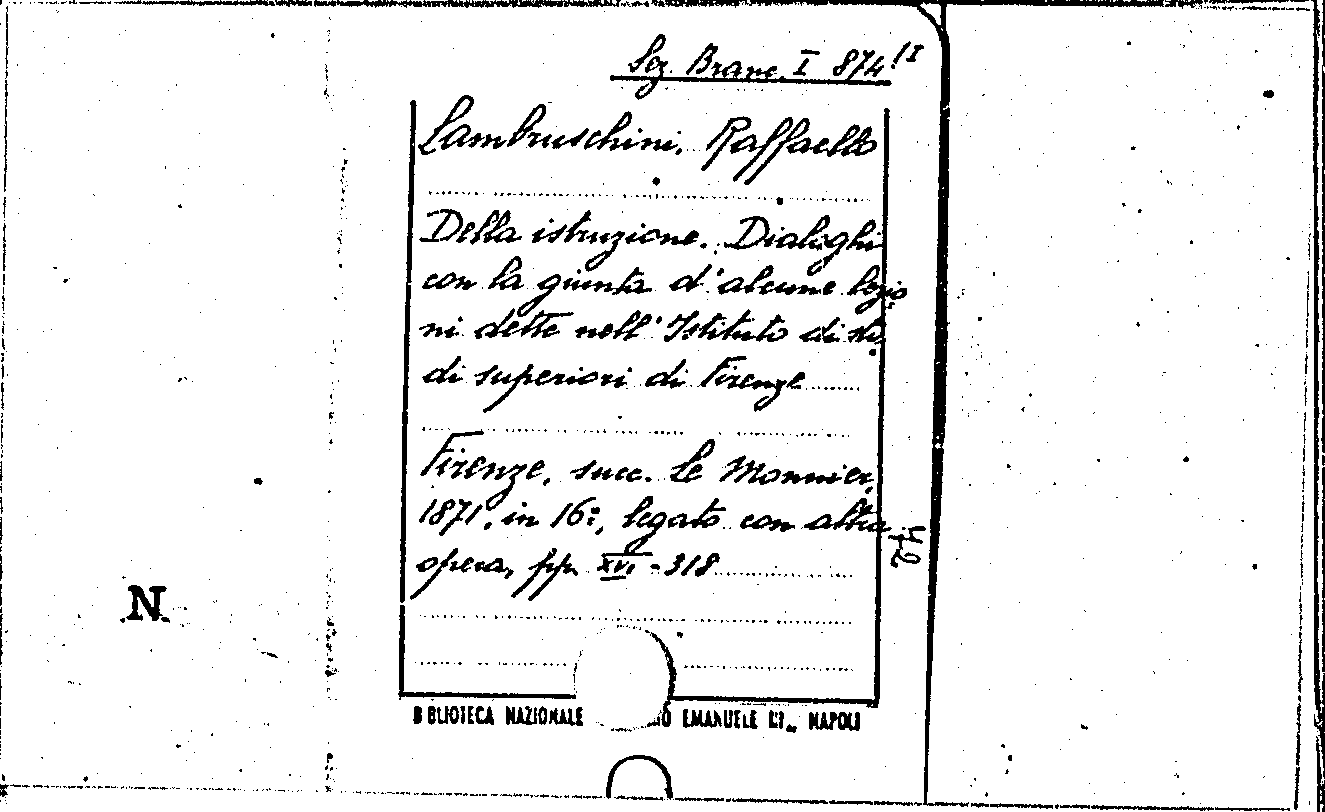 Sez. Branc. I 874 /I
Lambruschini, Raffaello
Della istruzione. Dialoghi
con la giunta d'alcune lezio
ni dette nell'Istituto di stu
di superiori di Firenze
Firenze, succ. Le Monnier,
1871, in 16º, legato con altra
opera, pp. XVI-318
N
BIBLIOTECA NAZIONALE EMANUELE III" NAPOLI